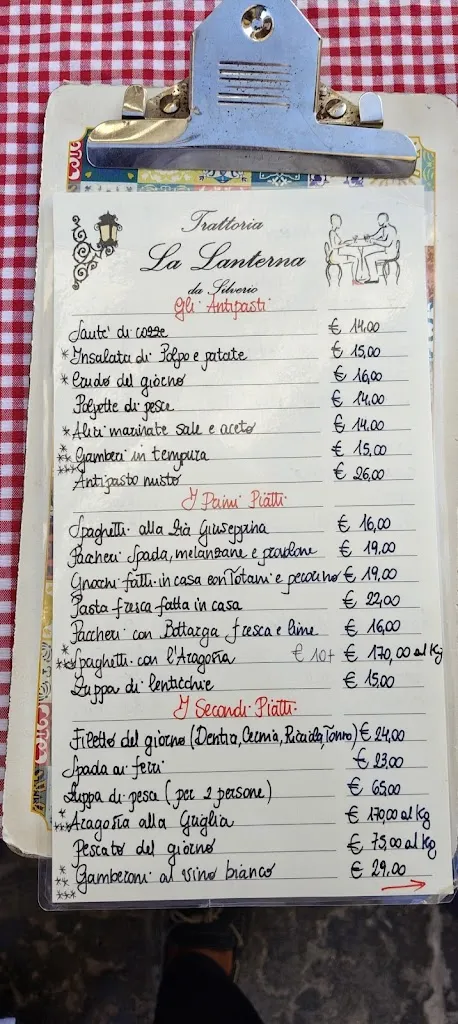 Trattoria
La Lanterna
da Silverio
Gli Antipasti
Sautè di cozze € 14.00
* Insalata di Polpo e patate € 15,00
* Crudo del giorno € 16,00
Polpette di pesce € 14.00
* Alici marinate sale e aceto € 14.00
** Gamberi in tempura € 15,00
*** Antipasto misto € 26,00
I Primi Piatti
Spaghetti alla Zia Giuseppina € 16,00
Paccheri Spada, melanzane e provolone € 19,00
Gnocchi fatti in casa con Totani e pecorino € 19,00
Pasta fresca fatta in casa € 22,00
Paccheri con Bottarga fresca e lime € 16,00
* *** Spaghetti con l'Aragosta € 10+ € 170,00 al Kg
Zuppa di lenticchie € 15.00
I Secondi Piatti
Filetto del giorno (Dentice, Cernia, Ricciola, Tonno) € 24,00
Spada ai ferri € 23,00
Zuppa di pesce (per 2 persone) € 65,00
* *** Aragosta alla Griglia € 170,00 al Kg
Pescato del giorno € 75,00 al Kg
* ** *** Gamberoni al vino bianco € 29.00